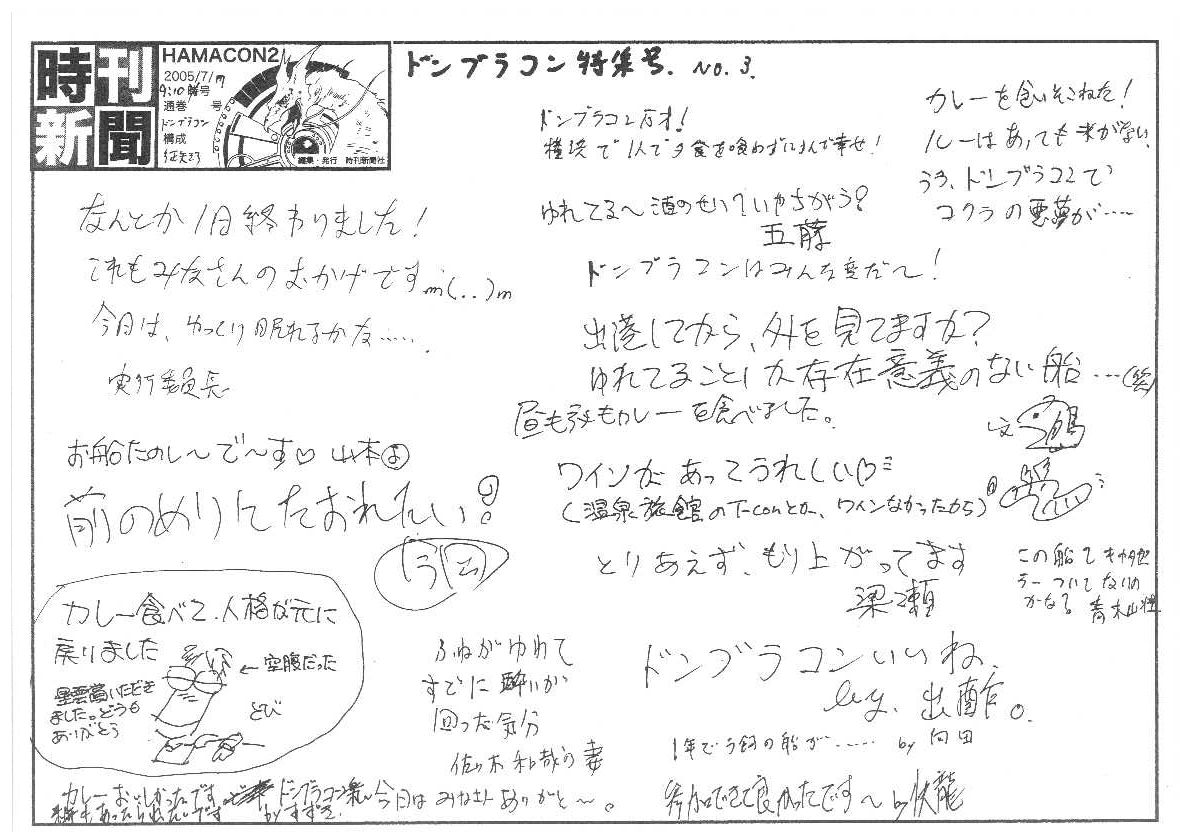 時刊新聞
HAMACON2
2005/7/17
9:10 号
通巻 号
ドンブラコン
構成
編集・発行 時刊新聞社
ドンブラコン特集号. No. 3.
なんとか1日終わりました!
これもみなさんのおかげですm(..)m
今日は、ゆっくり眠れるかな……
実行委員長
お船たのし〜で〜す♡ 山本
前のめりにたおれたい!
カレー食べて、人格が元に
戻りました
←空腹だった
星雲賞いただき
ました。どうも
ありがとう
とび
カレーおいしかったです
ドンブラコン万才!
で1人で夕食を喰わずに で幸せ!
ゆれてる〜酒のせい?いやちがう?
五藤
ドンブラコンはみんな変だ〜!
カレーを食いそこねた!
ルーはあっても米がない
うう、ドンブラコンで
コクラの悪夢が……
出港してから、外を見てますか?
ゆれてることしか存在意義のない船…(笑)
昼も夜もカレーを食べました。
ワインがあってうれしい♡
(温泉旅館のT-conとか、ワインなかったから)
とりあえず、もり上がってます
梁瀬
この船て キャタピ
ラー ついてないの
かな?
ふねがゆれて
すでに 酔いが
回った気分
佐々木和哉の妻
ドンブラコンいいね、
by. 出酢。
by 向田
今日は みなさん ありがと〜。
参加できて良かったです〜 by 伏龍